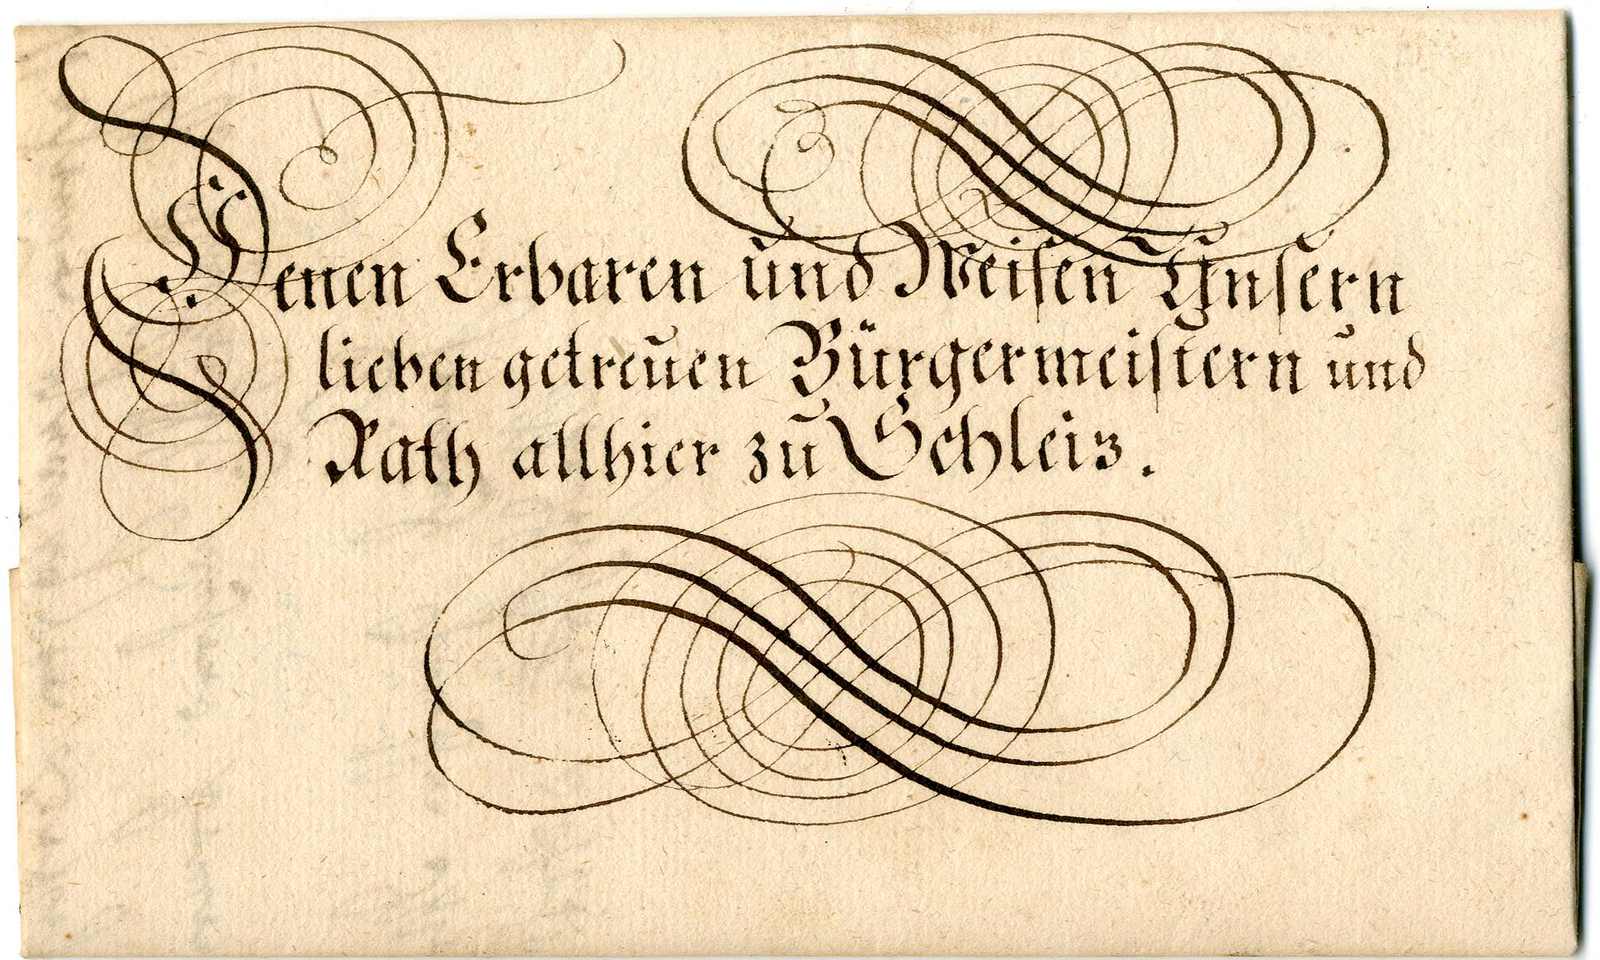 Denen Erbaren und Weisen Unsern
lieben getreuen Bürgermeistern und
Rath allhier zu Schleiz.